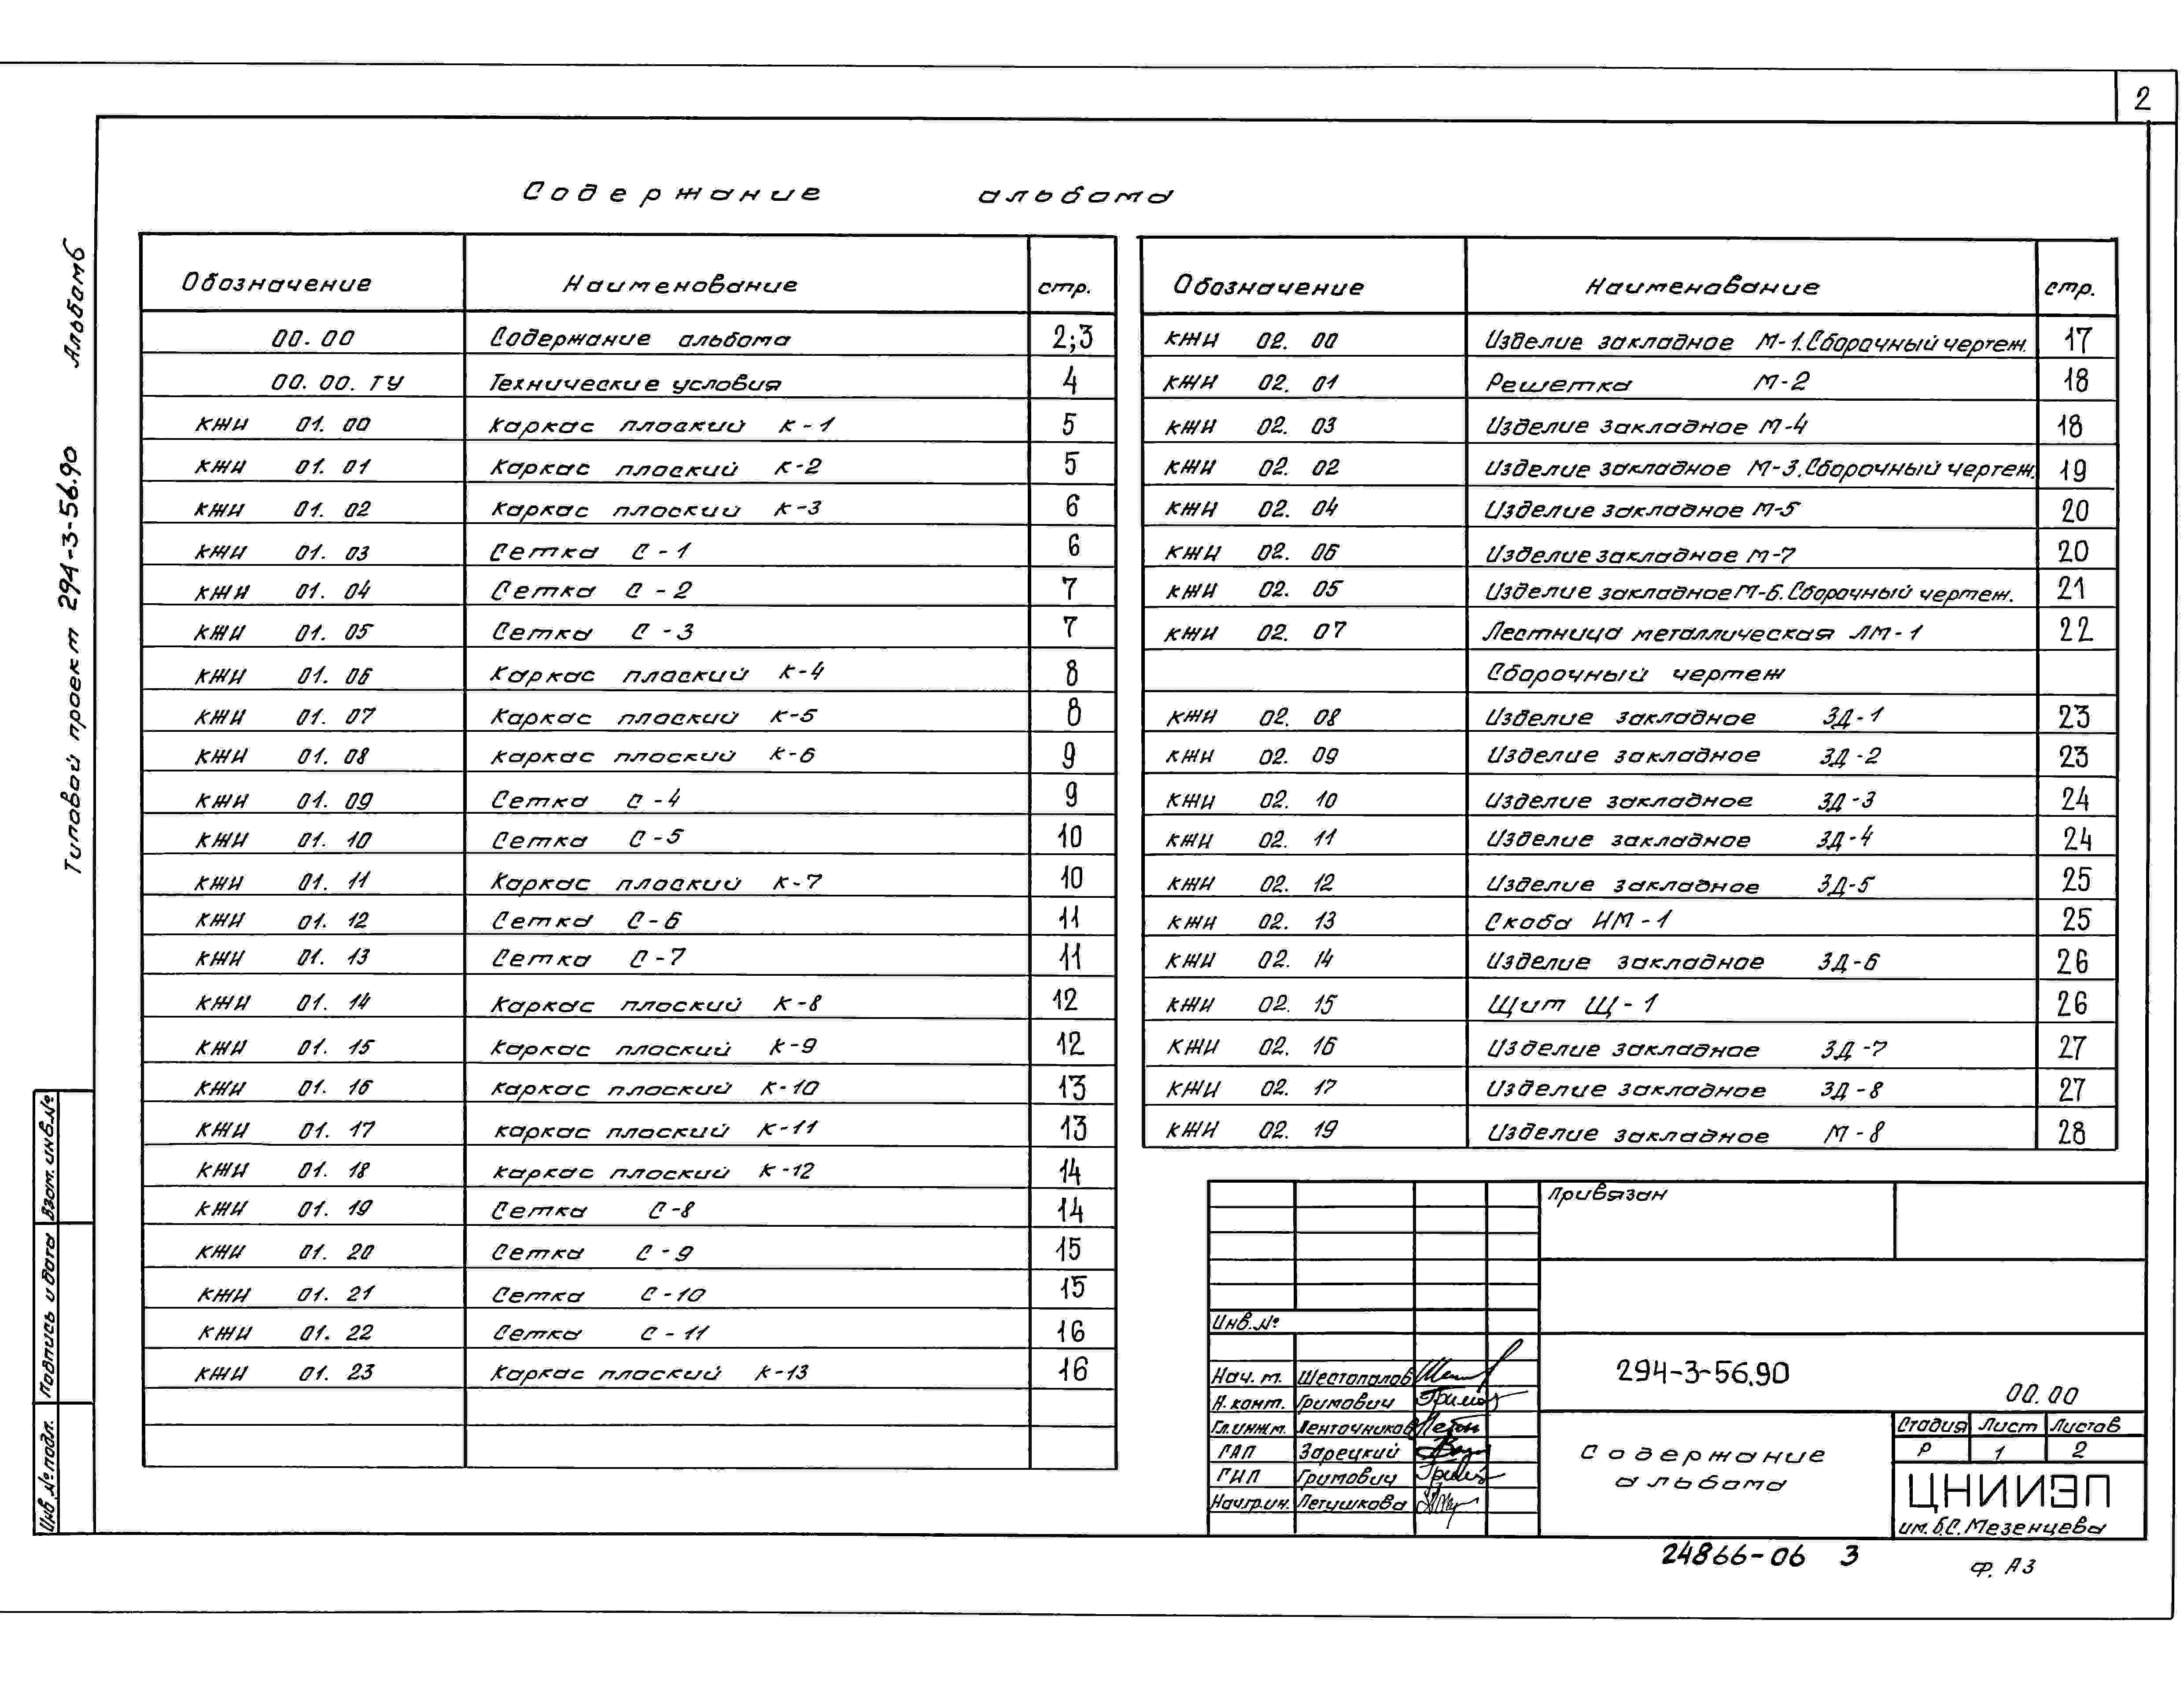 2
Содержание альбома
Обозначение Наименование стр.
00.00 Содержание альбома 2;3
00.00.ТУ Технические условия 4
КЖИ 01.00 Каркас плоский К-1 5
КЖИ 01.01 Каркас плоский К-2 5
КЖИ 01.02 Каркас плоский К-3 6
КЖИ 01.03 Сетка С-1 6
КЖИ 01.04 Сетка С-2 7
КЖИ 01.05 Сетка С-3 7
КЖИ 01.06 Каркас плоский К-4 8
КЖИ 01.07 Каркас плоский К-5 8
КЖИ 01.08 Каркас плоский К-6 9
КЖИ 01.09 Сетка С-4 9
КЖИ 01.10 Сетка С-5 10
КЖИ 01.11 Каркас плоский К-7 10
КЖИ 01.12 Сетка С-6 11
КЖИ 01.13 Сетка С-7 11
КЖИ 01.14 Каркас плоский К-8 12
КЖИ 01.15 Каркас плоский К-9 12
КЖИ 01.16 Каркас плоский К-10 13
КЖИ 01.17 Каркас плоский К-11 13
КЖИ 01.18 Каркас плоский К-12 14
КЖИ 01.19 Сетка С-8 14
КЖИ 01.20 Сетка С-9 15
КЖИ 01.21 Сетка С-10 15
КЖИ 01.22 Сетка С-11 16
КЖИ 01.23 Каркас плоский К-13 16
Обозначение Наименование стр.
КЖИ 02.00 Изделие закладное М-1.Сборочный чертеж. 17
КЖИ 02.01 Решетка М-2 18
КЖИ 02.03 Изделие закладное М-4 18
КЖИ 02.02 Изделие закладное М-3.Сборочный чертеж. 19
КЖИ 02.04 Изделие закладное М-5 20
КЖИ 02.06 Изделие закладное М-7 20
КЖИ 02.05 Изделие закладное М-6.Сборочный чертеж. 21
КЖИ 02.07 Лестница металлическая ЛМ-1 22
Сборочный чертеж
КЖИ 02.08 Изделие закладное ЗД-1 23
КЖИ 02.09 Изделие закладное ЗД-2 23
КЖИ 02.10 Изделие закладное ЗД-3 24
КЖИ 02.11 Изделие закладное ЗД-4 24
КЖИ 02.12 Изделие закладное ЗД-5 25
КЖИ 02.13 Скоба ИМ-1 25
КЖИ 02.14 Изделие закладное ЗД-6 26
КЖИ 02.15 Щит Щ-1 26
КЖИ 02.16 Изделие закладное ЗД-7 27
КЖИ 02.17 Изделие закладное ЗД-8 27
КЖИ 02.19 Изделие закладное М-8 28
Типовой проект 294-3-56.90 Альбом6
Взам. инв.№
Подпись и дата
Инв.№ подл.
Привязан
Инв.№
Нач. м. Шестопалов
Н. конт. Гримович
Гл.инж.м. Ленточников
ГАП Зарецкий
ГИП Гримович
Нач.гр.ин. Петушкова
294-3-56.90
00.00
Содержание
альбома
Стадия Лист Листов
Р 1 2
ЦНИИЭП
им. Б.С. Мезенцева
24866-06 3
Ф. А3